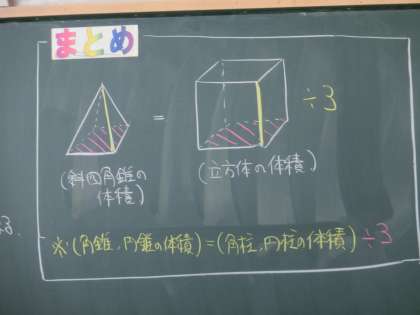 まとめ
= ÷3
(斜四角錐の
体積)
(立方体の体積)
※(角錐、円錐の体積)=(角柱、円柱の体積)÷3
る.